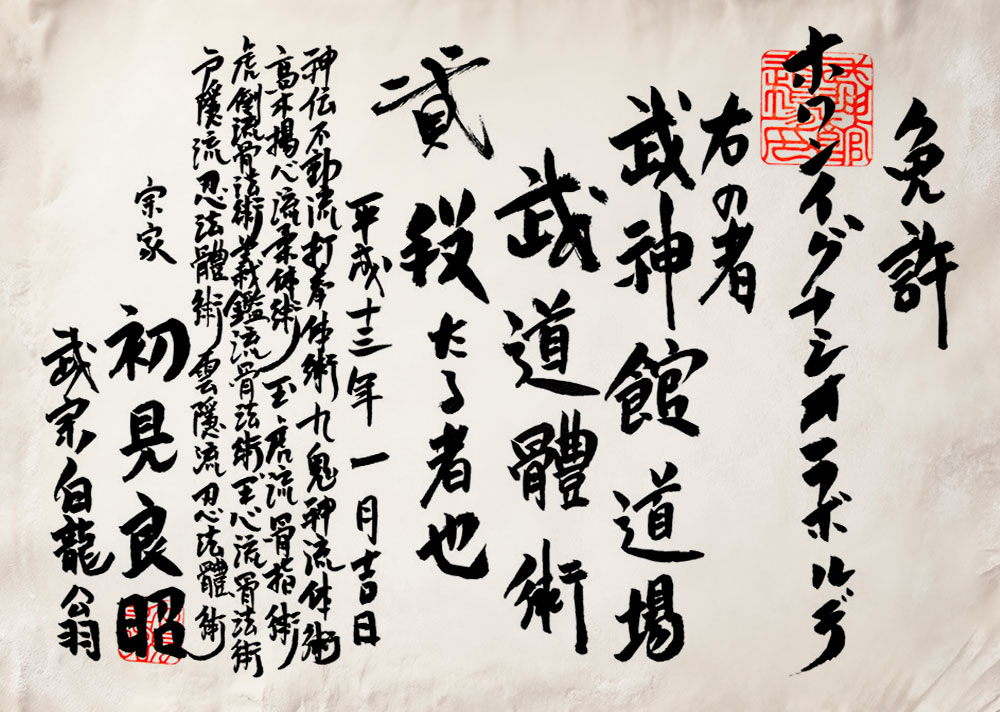 免許
ホワンイグナシオラボルデ
右の者
武神館道場
武道體術
貮段たる者也
平成十三年一月吉日
神伝不動流打拳体術九鬼神流体術
高木揚心流柔体術 玉虎流骨指術
虎倒流骨法術義鑑流骨法術玉心流骨法術
戸隠流忍法體術 雲隠流忍法體術
宗家
初見良昭
武宗白龍翁